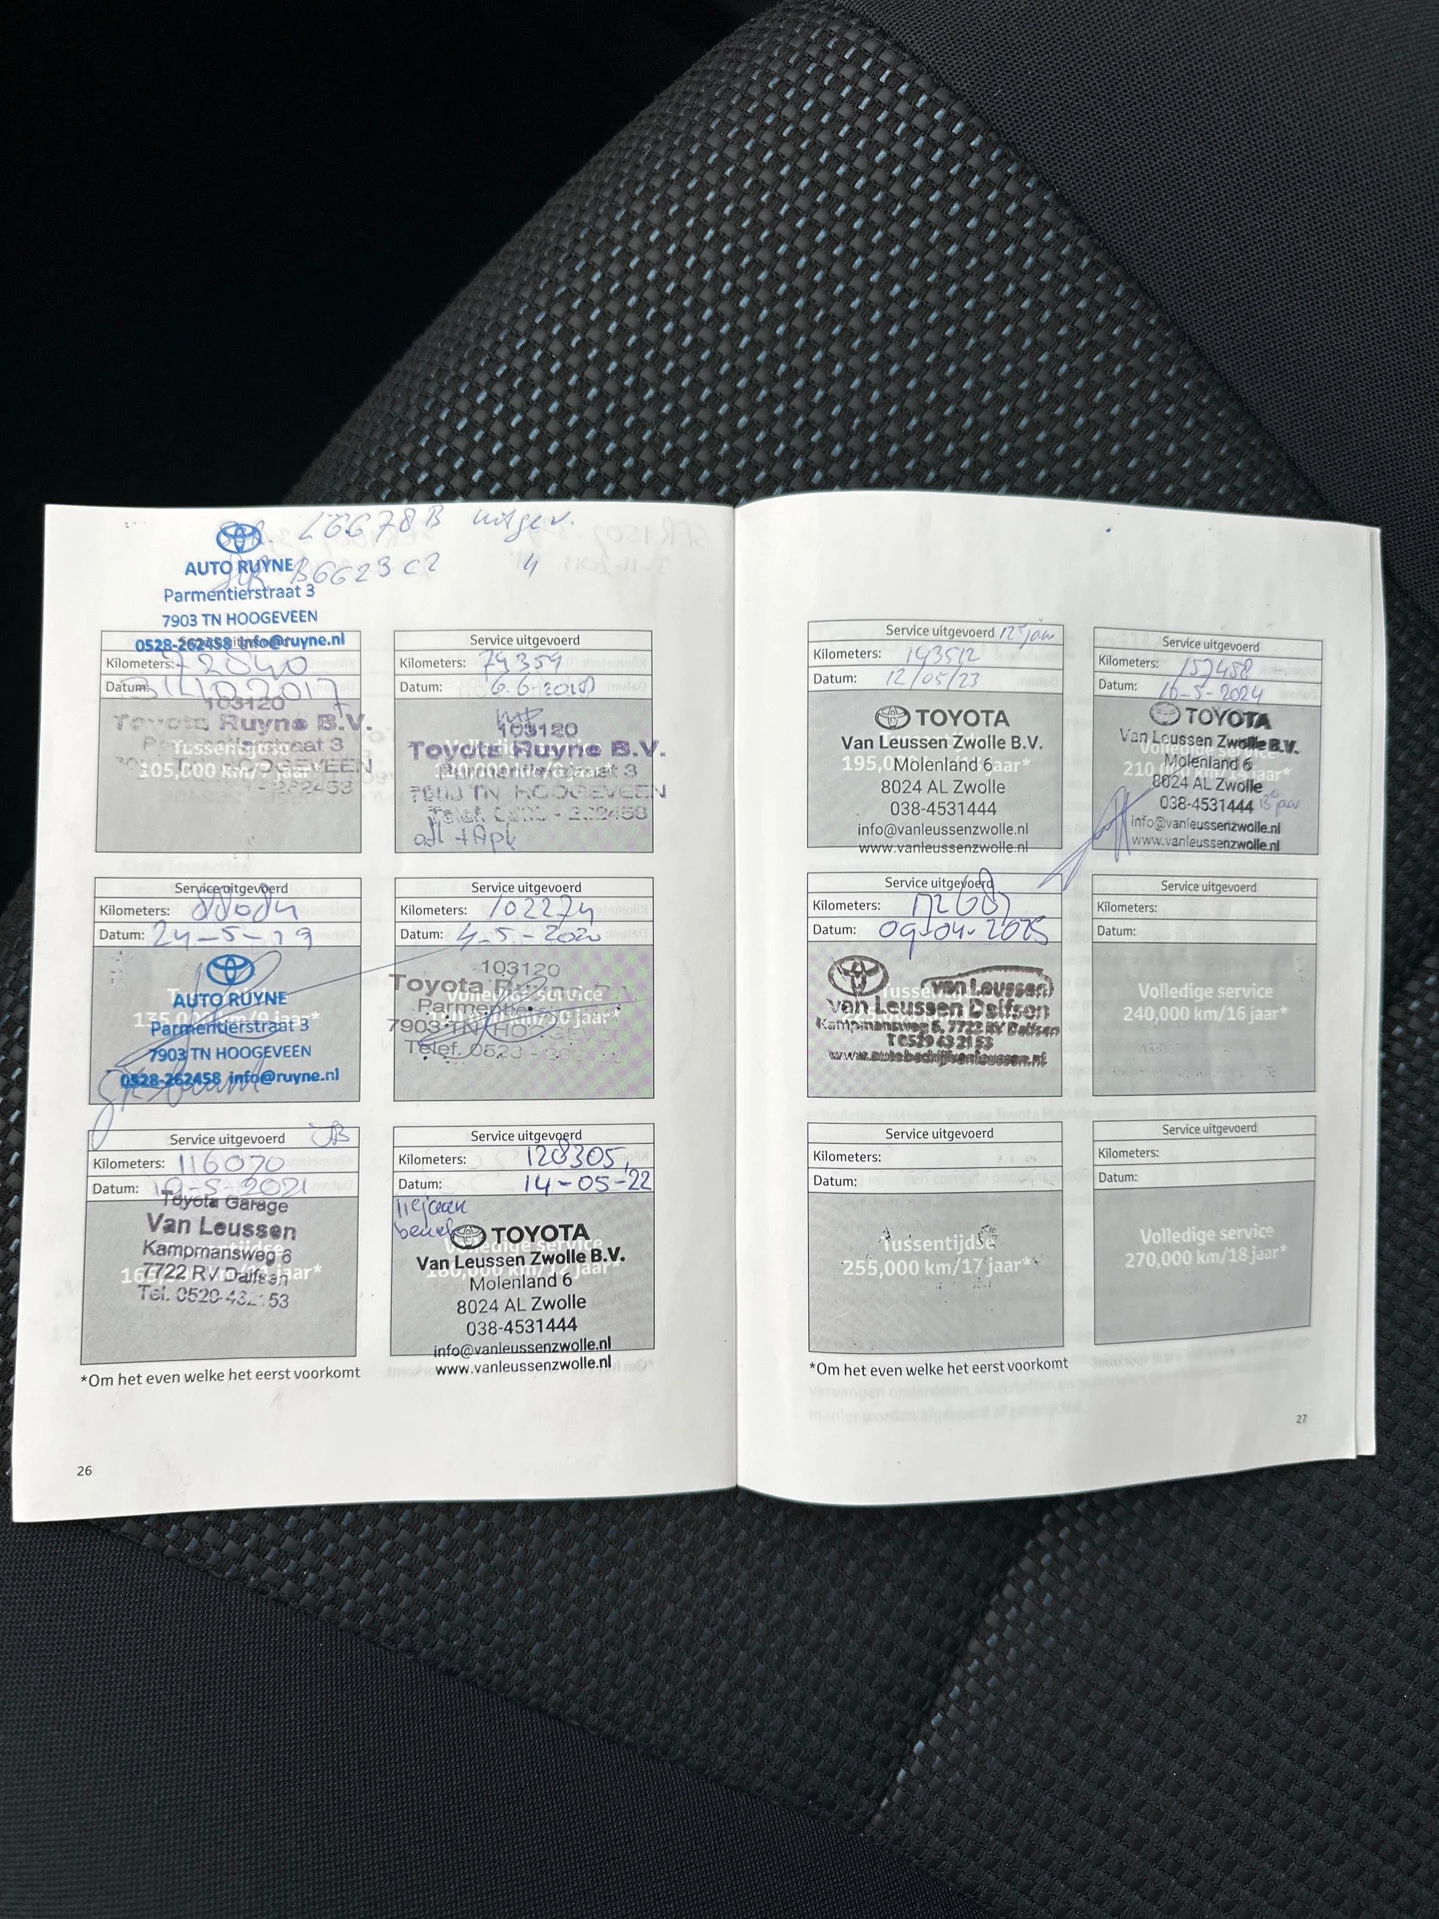 L6678B uitgev.
B6623C2
AUTO RUYNE
Parmentierstraat 3
7903 TN HOOGEVEEN
0528-262458 info@ruyne.nl
Kilometers: 72840
Datum: 31.10.2017
103120
Toyota Ruyne B.V.
Tussentijdse
HOOGEVEEN
105,000 km/7 jaar*
Service uitgevoerd
Kilometers: 74359
Datum: 6.6.2018
103120
Toyota Ruyne B.V.
Parmentierstraat 3
7903 TN HOOGEVEEN
+ Apk
Service uitgevoerd
Kilometers: 88084
Datum: 24-5-19
AUTO RUYNE
135,000 km/9 jaar*
Parmentierstraat 3
7903 TN HOOGEVEEN
0528-262458 info@ruyne.nl
Service uitgevoerd
Kilometers: 102274
Datum: 4-5-2020
103120
Toyota
Volledige service
7903 TN
Telef.
Service uitgevoerd
Kilometers: 116070
Datum: 10-5-2021
Toyota Garage
Van Leussen
Kampmansweg 6
7722 RV Dalfsen
Tel. 0529-432153
Service uitgevoerd
Kilometers: 128305
Datum: 14-05-22
11e jaar
TOYOTA
Volledige service
Van Leussen Zwolle B.V.
180,000 km/12 jaar*
Molenland 6
8024 AL Zwolle
038-4531444
info@vanleussenzwolle.nl
www.vanleussenzwolle.nl
*Om het even welke het eerst voorkomt
26
Service uitgevoerd 12e jaar
Kilometers: 143512
Datum: 12/05/23
TOYOTA
Van Leussen Zwolle B.V.
195,000
Molenland 6
8024 AL Zwolle
038-4531444
info@vanleussenzwolle.nl
www.vanleussenzwolle.nl
Service uitgevoerd
Kilometers: 157488
Datum: 16-5-2024
TOYOTA
Van Leussen Zwolle B.V.
Molenland 6
8024 AL Zwolle
038-4531444
info@vanleussenzwolle.nl
www.vanleussenzwolle.nl
Service uitgevoerd
Kilometers:
Datum: 09-04-2025
van Leussen
Van Leussen Dalfsen
Kampmansweg 6, 7722 RV Dalfsen
T 0529 43 21 53
www.autobedrijfvanleussen.nl
Service uitgevoerd
Kilometers:
Datum:
Volledige service
240,000 km/16 jaar*
Service uitgevoerd
Kilometers:
Datum:
Tussentijdse
255,000 km/17 jaar*
Service uitgevoerd
Kilometers:
Datum:
Volledige service
270,000 km/18 jaar*
*Om het even welke het eerst voorkomt
27